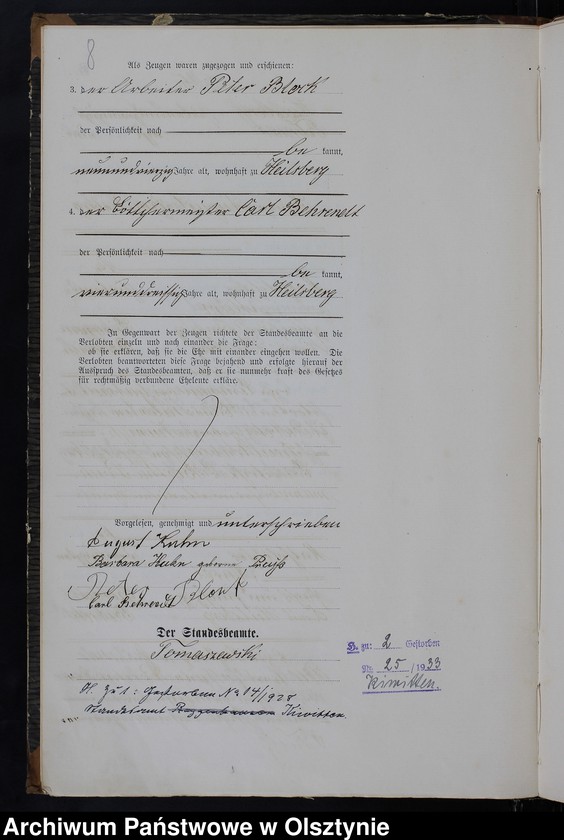 8
Als Zeugen waren zugezogen und erschienen:
3. der Arbeiter Peter Block
der Persönlichkeit nach
be kannt,
neunundvierzig Jahre alt, wohnhaft zu Heilsberg
4. der Böttchermeister Carl Behrendt
der Persönlichkeit nach
be kannt,
vierunddreissig Jahre alt, wohnhaft zu Heilsberg
In Gegenwart der Zeugen richtete der Standesbeamte an die
Verlobten einzeln und nach einander die Frage:
ob sie erklären, daß sie die Ehe mit einander eingehen wollen. Die
Verlobten beantworteten diese Frage bejahend und erfolgte hierauf der
Ausspruch des Standesbeamten, daß er sie nunmehr kraft des Gesetzes
für rechtmäßig verbundene Eheleute erkläre.
Vorgelesen, genehmigt und unterschrieben
August
Barbara geborne
Peter Block
Carl Behrendt
Der Standesbeamte.
Tomaszewski
H. zu: 2 Gestorben
No 25 / 1933
Kiwitten.
H. zu 1: Gestorben No 14/1928
Standesamt Kiwitten
Archiwum Państwowe w Olsztynie